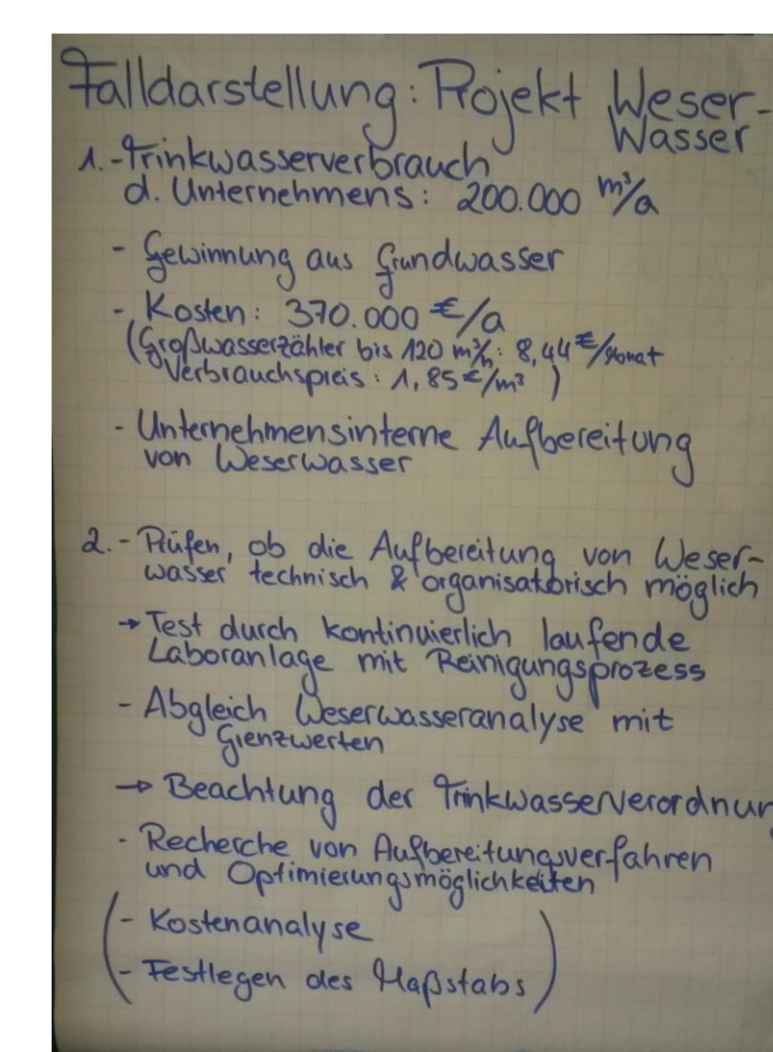 Falldarstellung: Projekt Weser-
Wasser
1. - Trinkwasserverbrauch
d. Unternehmens: 200.000 m³/a
- Gewinnung aus Grundwasser
- Kosten: 370.000 €/a
(Großwasserzähler bis 120 m³/h: 8,44 €/Monat
Verbrauchspreis: 1,85 €/m³ )
- Unternehmensinterne Aufbereitung
von Weserwasser
2. - Prüfen, ob die Aufbereitung von Weser-
wasser technisch & organisatorisch möglich
→ Test durch kontinuierlich laufende
Laboranlage mit Reinigungsprozess
- Abgleich Weserwasseranalyse mit
Grenzwerten
→ Beachtung der Trinkwasserverordnun
- Recherche von Aufbereitungsverfahren
und Optimierungsmöglichkeiten
(- Kostenanalyse
- Festlegen des Maßstabs)